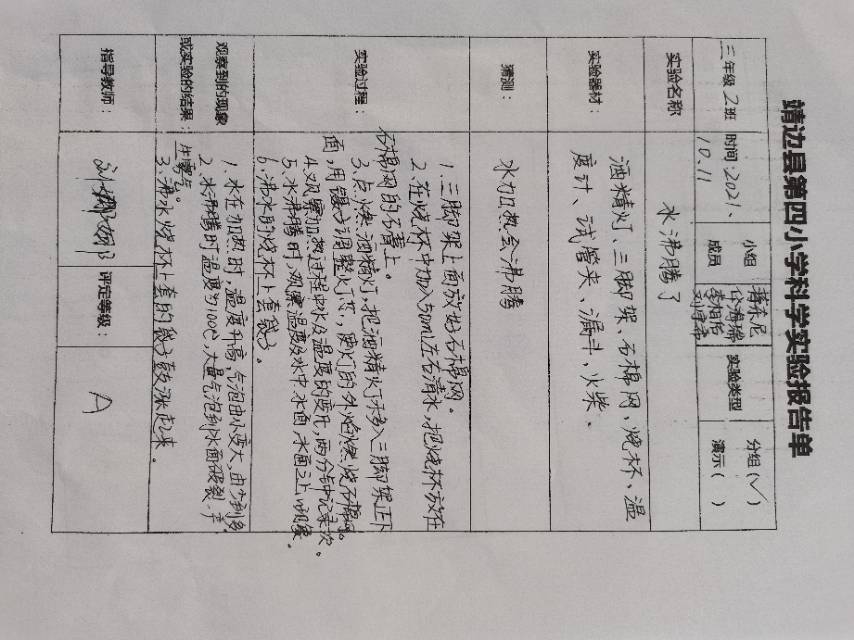 靖边县第四小学科学实验报告单
三年级2班 时间:2021、10.11 小组成员 实验类型 分组(✓) 演示( )
实验名称 水沸腾了
实验器材: 酒精灯、三脚架、石棉网、烧杯、温
度计、试管夹、漏斗、火柴、
猜测: 水加热会沸腾
实验过程: 1.三脚架上面放好石棉网。
2.在烧杯中加入50ml左右清水,把烧杯放在
石棉网的石膏上。
3.点燃酒精灯,把酒精灯移入三脚架正下
面,用镊子调整灯芯,使灯的外焰燃烧石棉网。
4.观察加热过程中水及温度的变化,两分钟记录一次。
5.水沸腾时,观察温度及水中、水面、水面之上的现象。
6.沸水的烧杯上套袋子。
观察到的现象
或实验的结果: 1.水在加热时,温度升高,气泡由小变大,由少到多
2.水沸腾时温度为100℃,大量气泡到水面破裂,产
生雾气。
3.沸水烧杯上套的袋子鼓涨起来。
指导教师: 刘娜娜 评定等级: A